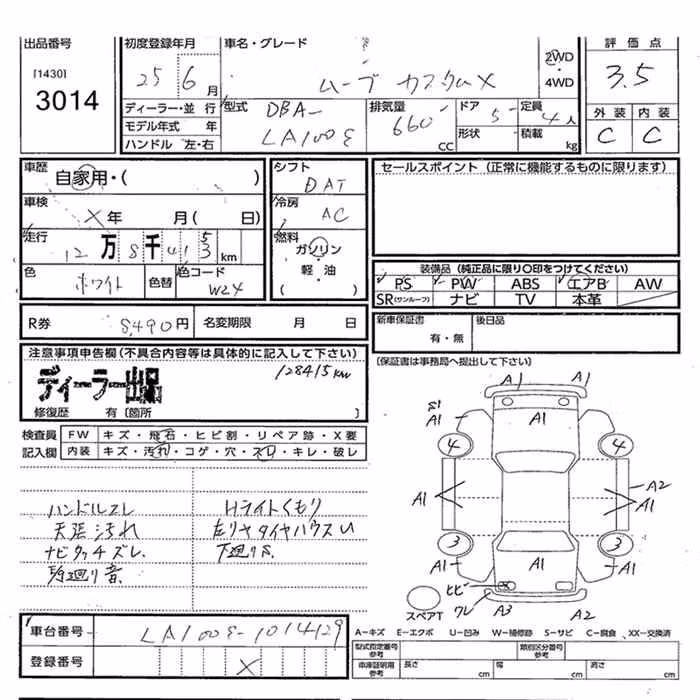 出品番号 初度登録年月 車名・グレード 評価点
[1430] 25 6月 ムーブ カスタムX 2WD・4WD 3.5
3014
ディーラー・並 行 型式 DBA-LA100S 排気量 660 CC ドア 5 定員 4人 外装 内装
モデル年式 年 形状 積載 kg C C
ハンドル 左・右
車歴 自家用・( ) シフト DAT セールスポイント (正常に機能するものに限ります)
車検 X年 月( 日) 冷房 AC
走行 12万8千415 km 燃料 ガソリン・軽油 ( )
3
色 ホワイト 色替 色コード W24
装備品 (純正品に限り○印をつけてください)
PS PW ABS エアB AW
SR(サンルーフ) ナビ TV 本革
R券 8,490円 名変期限 月 日 新車保証書 有・無 後日品
注意事項申告欄(不具合内容等は具体的に記入して下さい) (保証書は事務局へ提出して下さい)
ディーラー出品 128415km
修復歴 有 [箇所 ]
検査員 FW キズ・飛石・ヒビ割・リペア跡・X要
記入欄 内装 キズ・汚れ・コゲ・穴・スレ・キレ・破レ
ハンドルスレ Hライトくもり
天張汚れ 左リヤタイヤハウスU
ナビタッチズレ. 下廻りS.
音.
A1 A1
S1 A1 A1 A1
4 4
A1 A2 A1
3 3
A1 A1 A1
ヒビ
ワレ A3 A2
スペアT
車台番号 LA100S-1014129
登録番号 X
A-キズ E-エクボ U-凹み W-補修跡 S-サビ C-腐食 XX-交換済
型式指定番号 参考 類別区分番号 参考
車庫証明用 参考 長さ cm 幅 cm 高さ cm